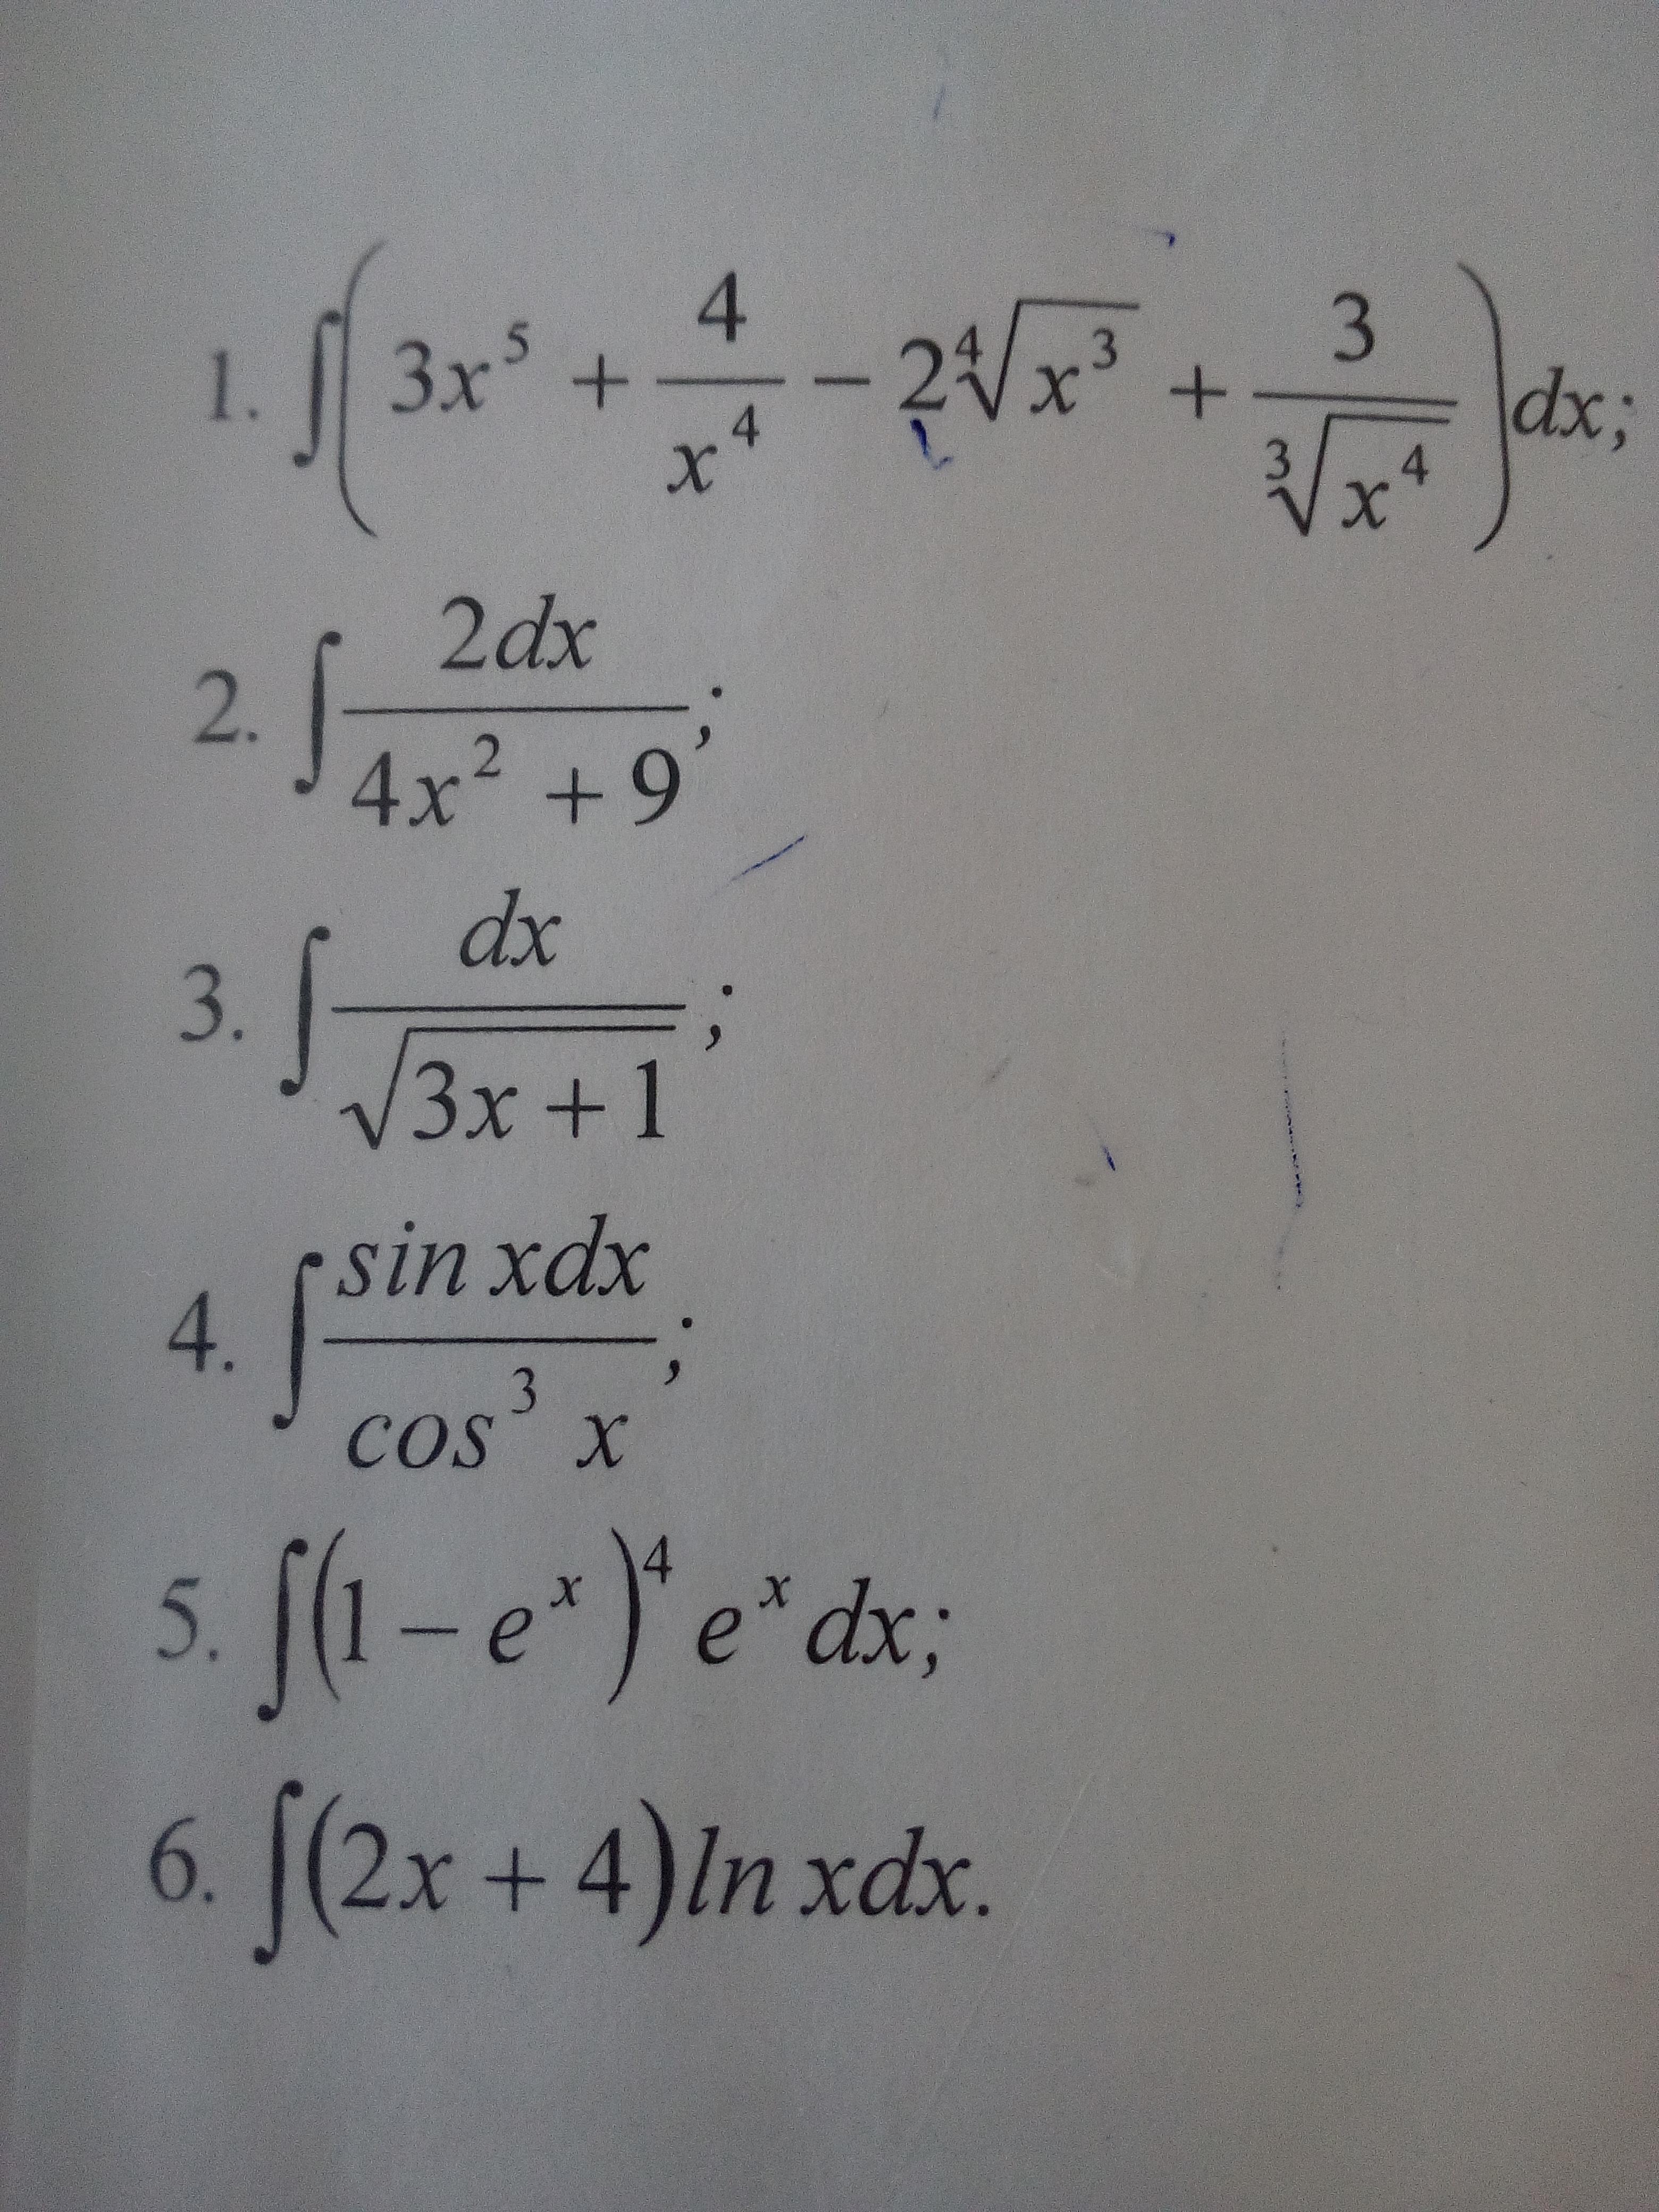 1. ∫(3x⁵ + 4/x⁴ − 2∜x³ + 3/∛x⁴)dx;
2. ∫2dx/(4x² + 9);
3. ∫dx/√(3x + 1);
4. ∫sin xdx/cos³ x;
5. ∫(1 − eˣ)⁴ eˣ dx;
6. ∫(2x + 4)ln xdx.